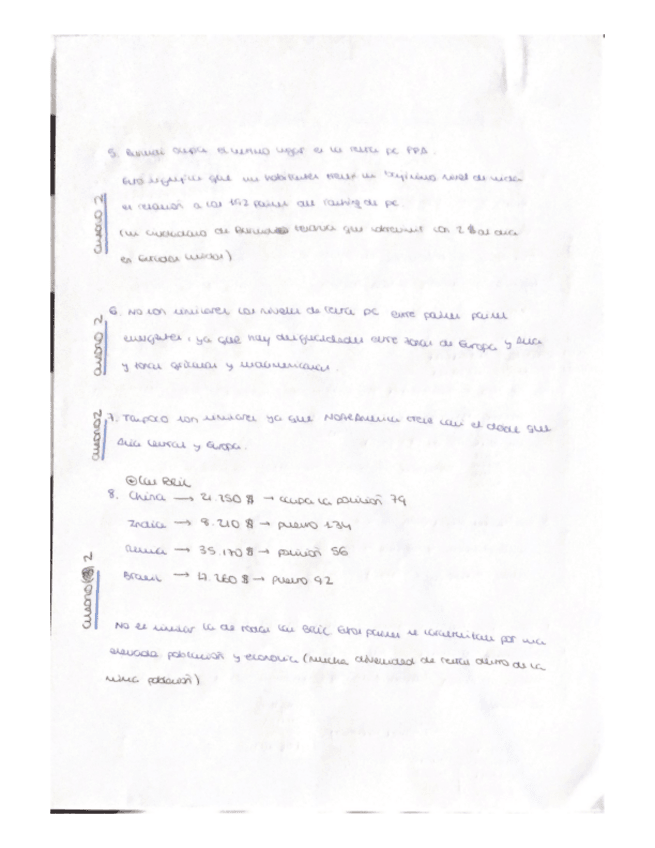 5. Burundi ocupa el último lugar en la renta pc PPA.
Esto significa que sus habitantes tienen un bajísimo nivel de vida
en relación a los 192 países del ranking de pc
(un ciudadano de Burundi tendría que sobrevivir con 2 $ al día
en Estados Unidos)
cuadro 2
6. No son similares los niveles de renta pc entre países países
emergentes, ya que hay desigualdades entre zonas de Europa y Asia
y zonas africanas y
cuadro 2
7. Tampoco son similares ya que Norteamérica crece casi el doble que
Asia central y Europa.
cuadro 2
Los BRIC
8. China → 21.250 $ → ocupa la posición 79
India → 8.210 $ → puesto 134
Rusia → 35.170 $ → posición 56
Brasil → 17.260 $ → puesto 92
cuadro 2
No es similar la de todos los BRIC. Estos países se caracterizan por una
elevada población y economía (mucha diversidad de rentas dentro de la
misma población)